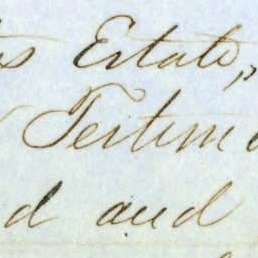 Estate,
Testim
d and